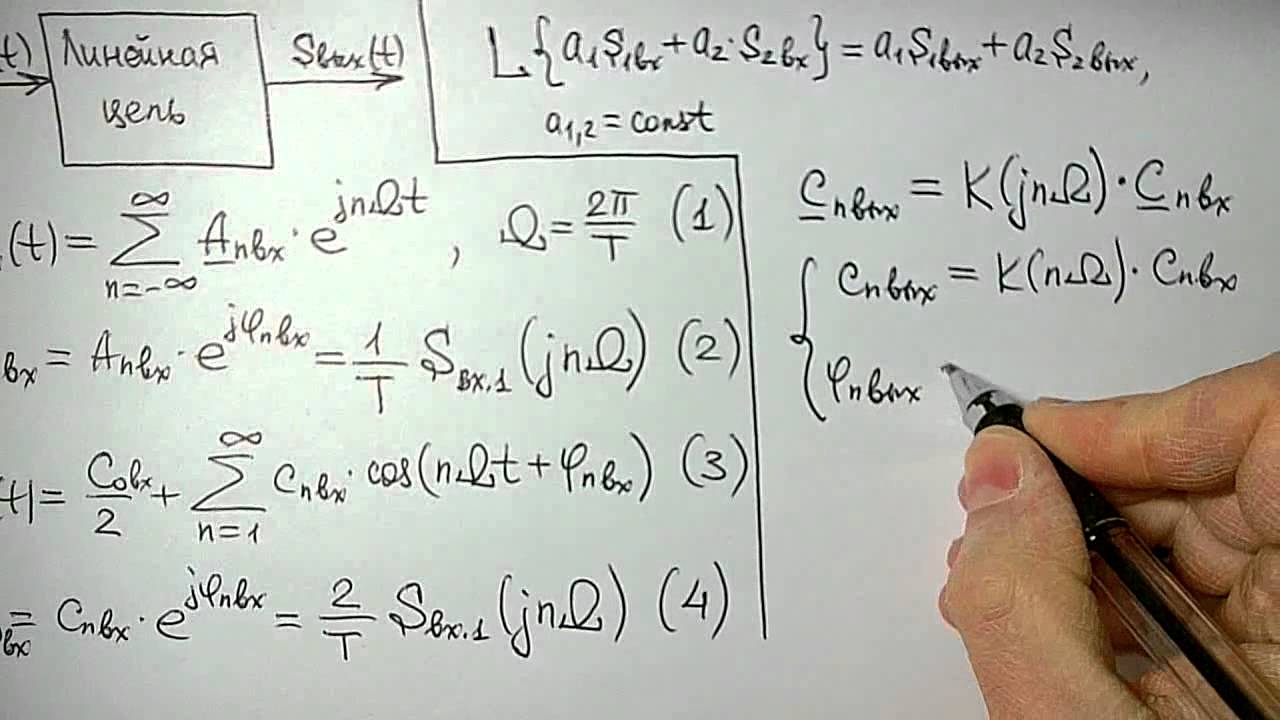 t)
Линейная
цепь
Sвых(t)
L{a₁S₁вх+a₂·S₂вх}=a₁S₁вых+a₂S₂вых,
a₁,₂=const
(t)=∑_{n=-∞}^{∞} A̲nвх·e^{jnΩt}, Ω=2π/T (1)
вх=Anвх·e^{jφnвх}=1/T Sвх.1(jnΩ) (2)
(t)=C₀вх/2+∑_{n=1}^{∞} Cnвх·cos(nΩt+φnвх) (3)
вх=Cnвх·e^{jφnвх}=2/T Sвх.1(jnΩ) (4)
C̲nвых=K(jnΩ)·C̲nвх
{Cnвых=K(nΩ)·Cnвх
φnвых